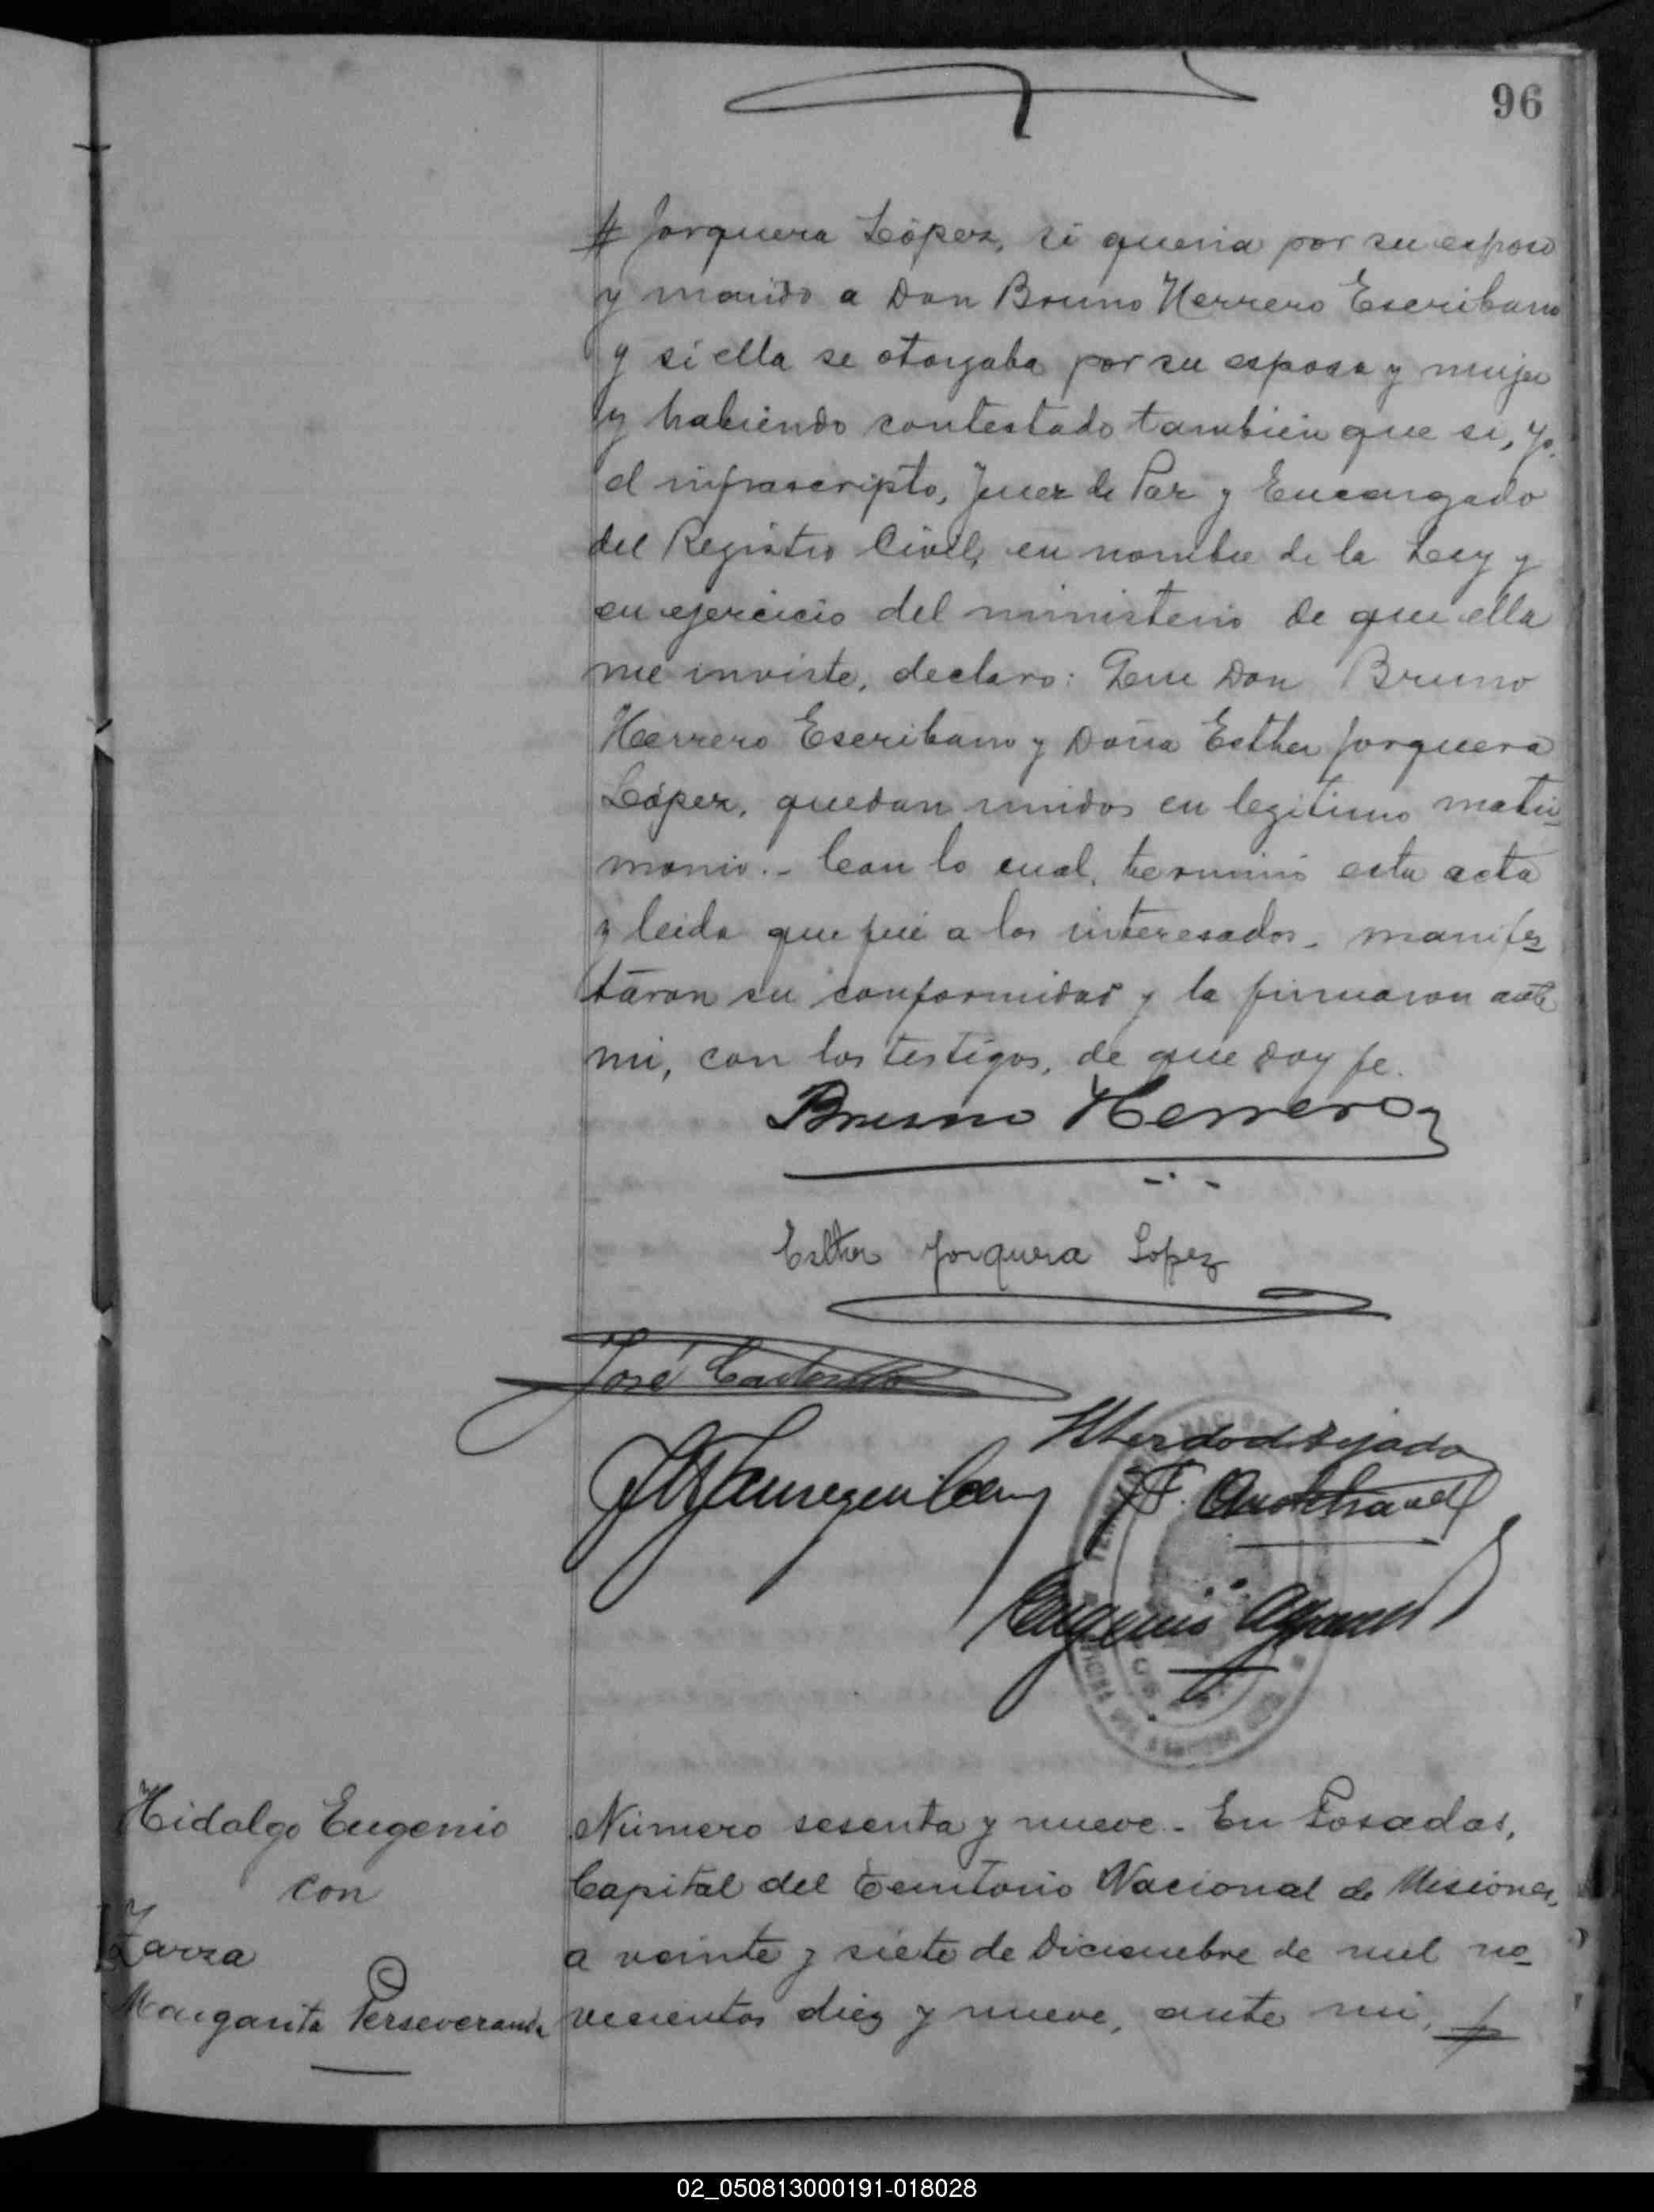 96
# Jorquera López, si queria por su esposo
y marido a Don Bruno Herrero Escribano
y si ella se otorgaba por su esposa y mujer
y habiendo contestado tambien que si, yo
el infrascripto, Juez de Paz y Encargado
del Registro Civil, en nombre de la Ley y
en ejercicio del ministerio de que ella
me inviste, declaro: Que Don Bruno
Herrero Escribano y Doña Esther Jorquera
López, quedan unidos en legitimo matri-
monio.- Con lo cual, terminó esta acta
y leida que fué a los interesados- manifes-
táron su conformidad y la firmaron ante
mi, con los testigos, de que doy fe.
Bruno Herrero
Esther Jorquera Lopez
José
Eugenio
Hidalgo Eugenio
con
Zarza
Margarita Perseveranda
Número sesenta y nueve.- En Posadas,
Capital del Territorio Nacional de Misiones,
a veinte y siete de Diciembre de mil no-
vecientos diez y nueve, ante mi,
02_050813000191-018028